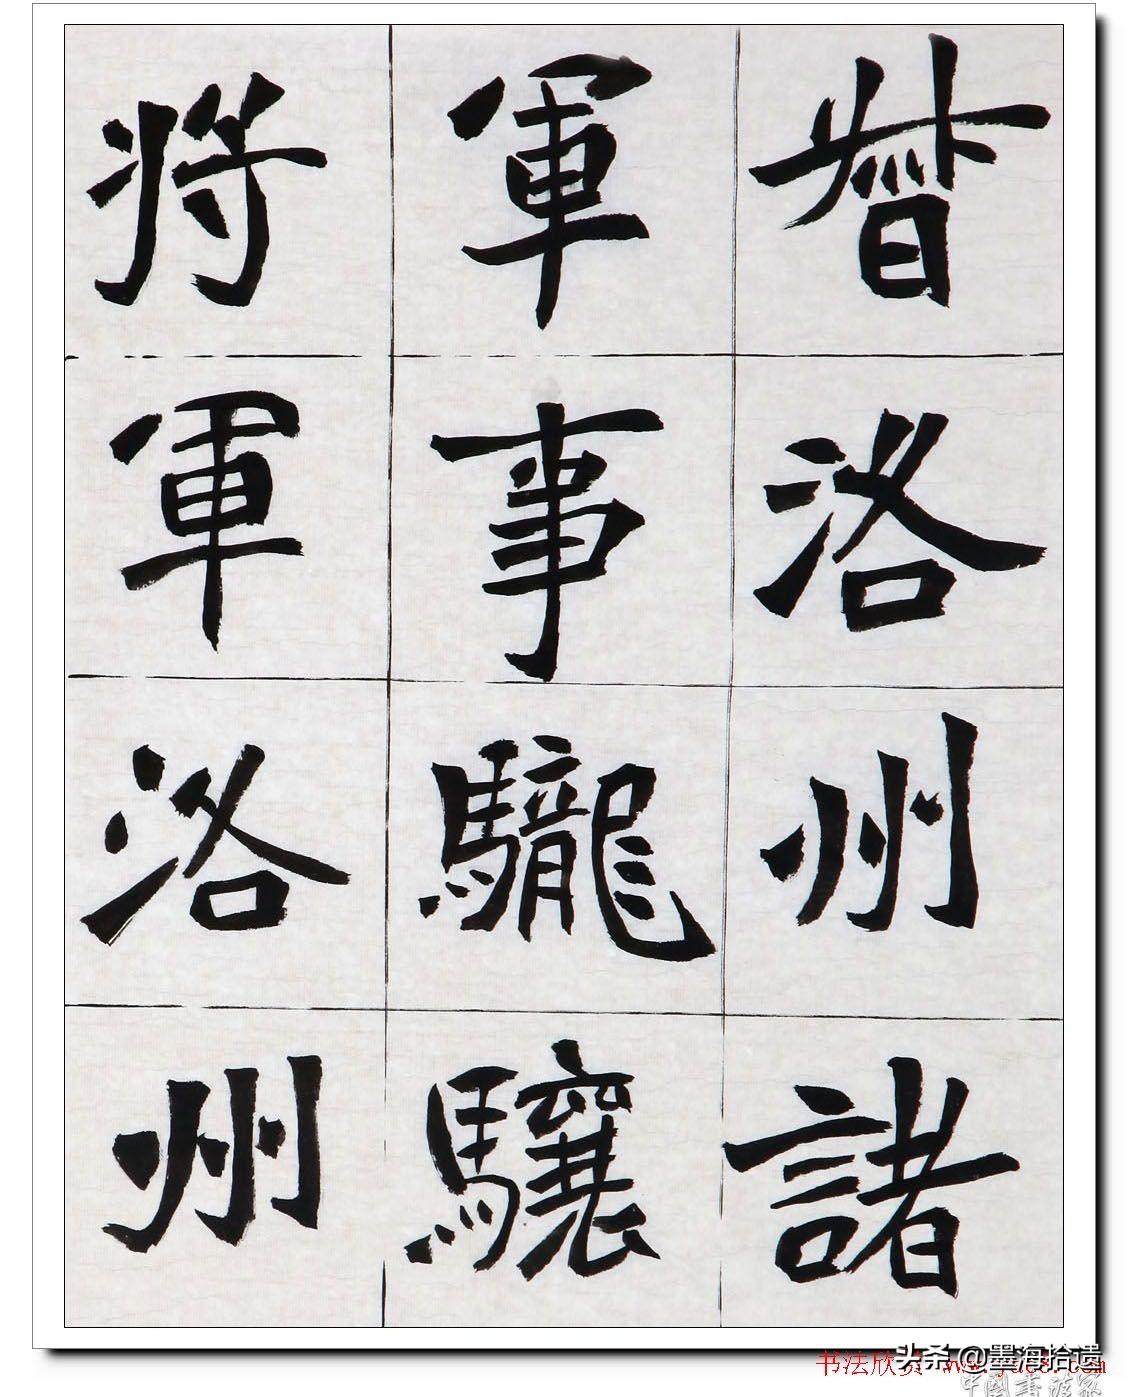 督洛州諸
軍事䮾驤
将軍洛州
头条 @墨海拾遗
书法欣赏
中國書法家